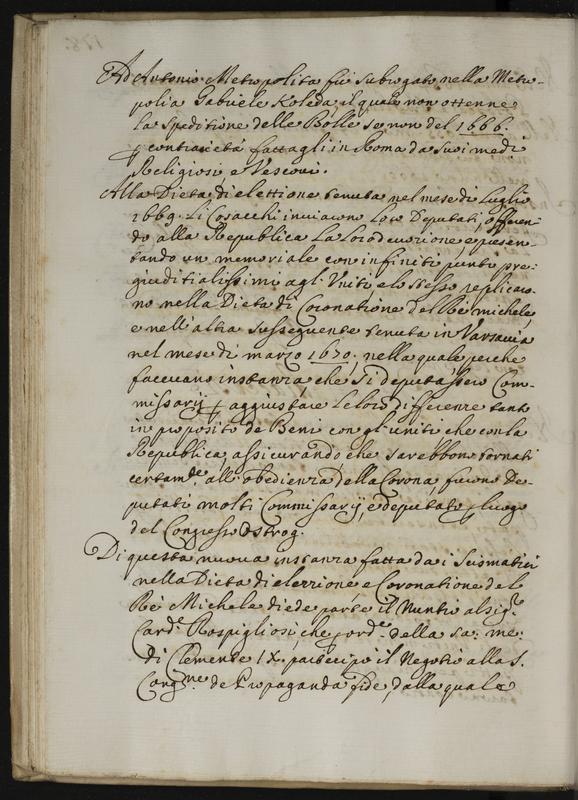 Ad Antonio Metropolita fù subrogato nella Metro-
polia Gabriele Koleda, il quale non ottenne
la speditione delle Bolle se non del 1666.
p contrarietà fattagli in Roma da suoi medi
Religiosi e Vescovi.
Alla Dieta di elettione tenuta nel mese di Luglio
1669. Li Cosacchi inviarono Loro Deputati, offeren-
do alla Republica La loro devotione, e presen-
tando un memoriale con infiniti punti pre-
giuditialissimi agl'Uniti e lo stesso replicaro-
no nella Dieta di Coronatione del Rè Michele,
e nell'altra sussequente tenuta in Varsavia
nel mese di marzo 1670, nella quale perche
facevano instanza, che si deputassero Com-
missarij p aggiustare le loro differenze tanto
in proposito de Beni con gl'uniti che con la
Republica, assicurando che sarebbono tornati
certamte all'obedienza della Corona, furono De-
putati molti Commissarij, e deputato p luogo
del Congresso Ostrog.
Di questa nuova instanza fatta da i Scismatici
nella Dieta di elezzione e Coronatione del
Rè Michele diede parte il Nuntio al sigr
Card. Rospigliosi, che p orde della sa: me:
di Clemente IX. partecipò il Negotio alla S.
Congne de Propaganda fide, dalla quale